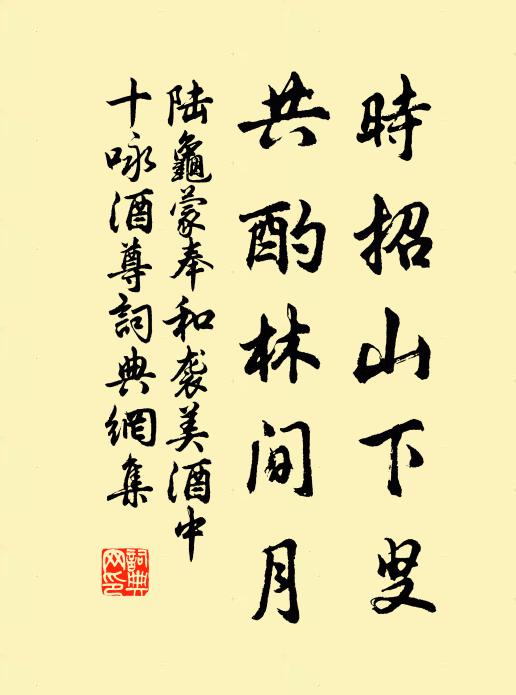 時招山下叟
共酌林間月
陆龜蒙奉和袭美酒中
十咏酒尊詞典網集
詞典网印